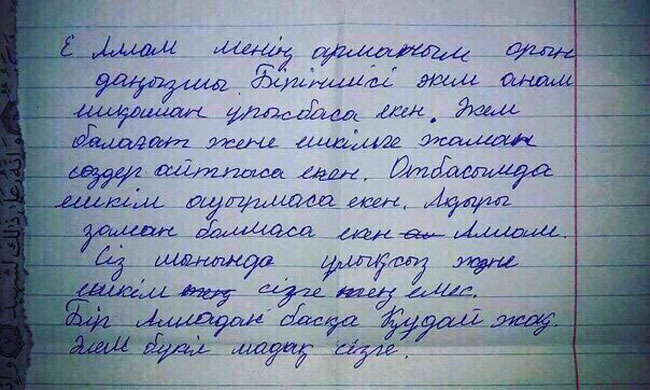 Е Аллам менің арманым орын
даңызшы. Біріншісі әкем анам
ешқашан ұрыспаса екен. Әкем
балағат жене ешкімге жаман
сөздер айтпаса екен. Отбасымда
ешкім ауырмаса екен. Ақыры
заман болмаса екен Аллам.
Сіз шынында ұлықсыз және
ешкім сізге тең емес.
Бір Алладан басқа Құдай жоқ.
Әлем бүкіл мадақ сізге.